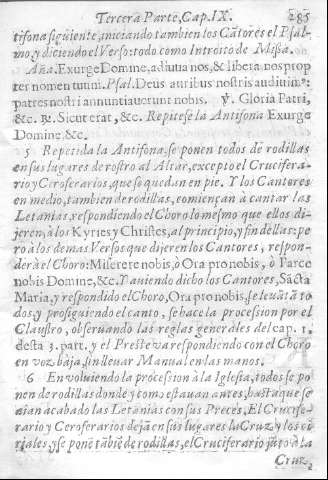 Tercera Parte, Cap. IX. 285
tifona siguiente, iniciando tambien los Cãtores el Psal-
mo, y diciendo el Verso: todo como Introito de Missa.
Aña. Exurge Domine, adiuva nos, & libera nos prop
ter nomen tuum. Psal. Deus auribus nostris audivimus:
patres nostri annuntiaverunt nobis. ℣. Gloria Patri,
&c. ℞. Sicut erat, &c. Repitese la Antifona Exurge
Domine, &c.
5 Repetida la Antifona, se ponen todos de rodillas
en sus lugares de rostro al Altar, excepto el Crucifera-
rio y Ceroferarios, que se quedan en pie. Y los Cantores
en medio, tambien de rodillas, comiençan à cantar las
Letanias, respondiendo el Choro lo mesmo que ellos di-
jeren, à los Kyries y Christes, al principio, y fin dellas: pe-
ro à los demas Versos que dijeren los Cantores, respon-
derà el Choro: Miserere nobis, ò Ora pro nobis, ò Parce
nobis Domine, &c. Y aviendo dicho los Cantores, Sãcta
Maria, y respondido el Choro, Ora pro nobis, se levãtã to
dos, y prosiguiendo el canto, se hace la procession por el
Claustro, observando las reglas generales del cap. 1.
desta 3. part. y el Preste va respondiendo con el Choro
en voz bàja, sin llevar Manual en las manos.
6 En volviendo la procession à la Iglesia, todos se po
nen de rodillas donde y como estavan antes, hasta que se
aian acabado las Letanias con sus Preces. El Crucife-
rario y Ceroferarios dejã en sus lugares la Cruz y los ci-
riales, y se ponẽ tãbiẽ de rodillas, el Cruciferario jũto à la
Cruz,